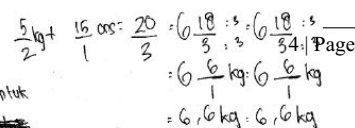 5/2 kg + 15/1 ons = 20/3 = 6 18/3 : 3/3 = 6 18/3 : 3
Page
= 6 6/1 kg = 6 6/1 kg
= 6,6 kg = 6,6 kg